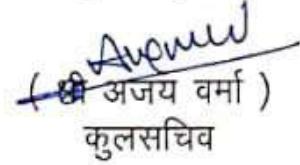 ( श्री अजय वर्मा )
कुलसचिव